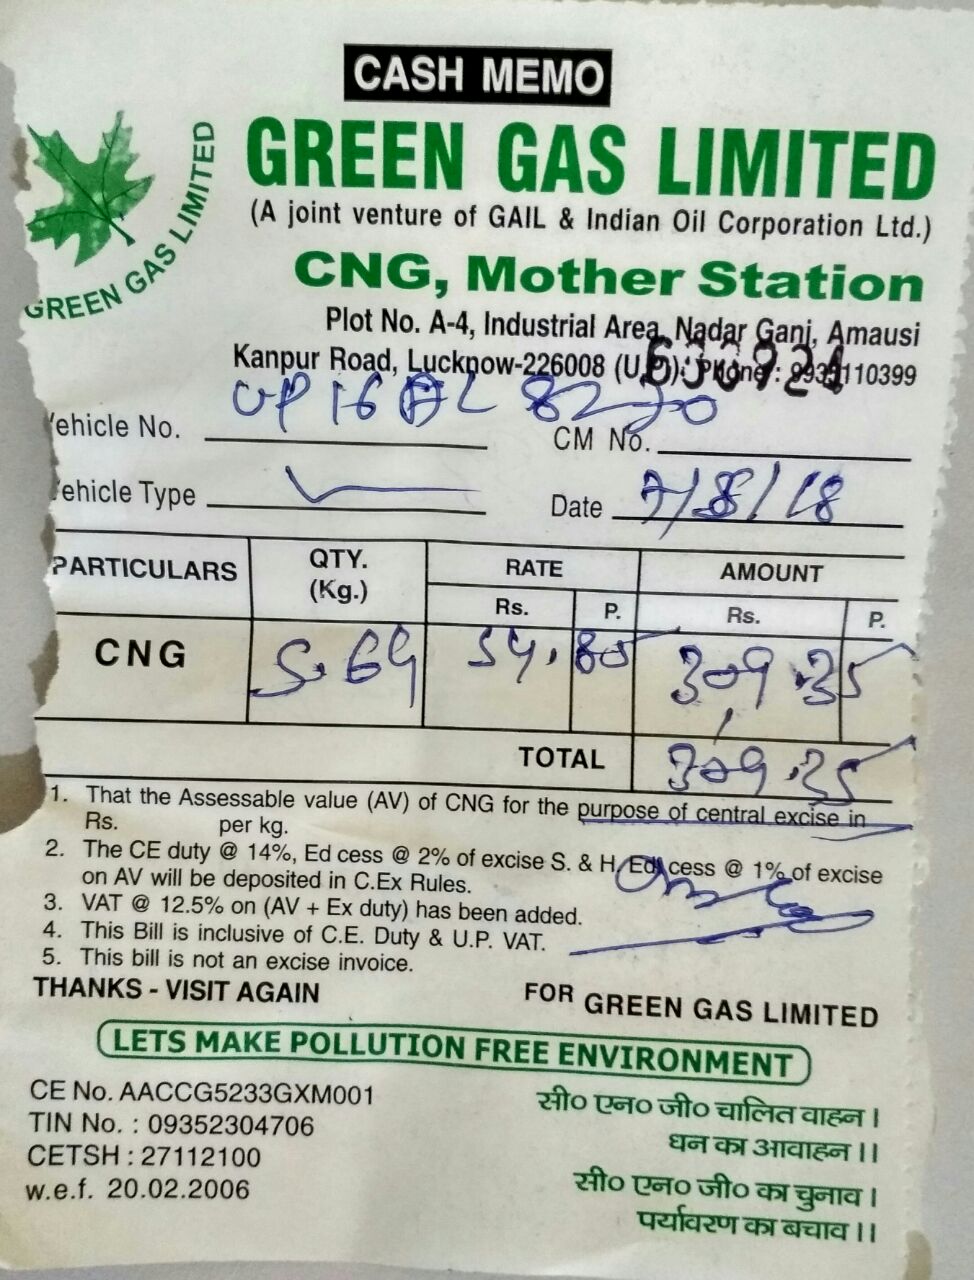 CASH MEMO
GREEN GAS LIMITED
GREEN GAS LIMITED
(A joint venture of GAIL & Indian Oil Corporation Ltd.)
CNG, Mother Station
Plot No. A-4, Industrial Area, Nadar Ganj, Amausi
Kanpur Road, Lucknow-226008 (U.P.): Phone : 9935110399
ehicle No. UP 16 8270 CM No.
ehicle Type Date 7/8/18
PARTICULARS QTY. (Kg.) RATE AMOUNT
Rs. P. Rs. P.
CNG 5.64 54.85 309.35
TOTAL 309.35
1. That the Assessable value (AV) of CNG for the purpose of central excise in
Rs. per kg.
2. The CE duty @ 14%, Ed cess @ 2% of excise S. & H. Ed. cess @ 1% of excise
on AV will be deposited in C.Ex Rules.
3. VAT @ 12.5% on (AV + Ex duty) has been added.
4. This Bill is inclusive of C.E. Duty & U.P. VAT.
5. This bill is not an excise invoice.
THANKS - VISIT AGAIN FOR GREEN GAS LIMITED
LETS MAKE POLLUTION FREE ENVIRONMENT
CE No. AACCG5233GXM001
TIN No. : 09352304706
CETSH : 27112100
w.e.f. 20.02.2006
सी० एन० जी० चालित वाहन ।
धन का आवाहन ।।
सी० एन० जी० का चुनाव ।
पर्यावरण का बचाव ।।